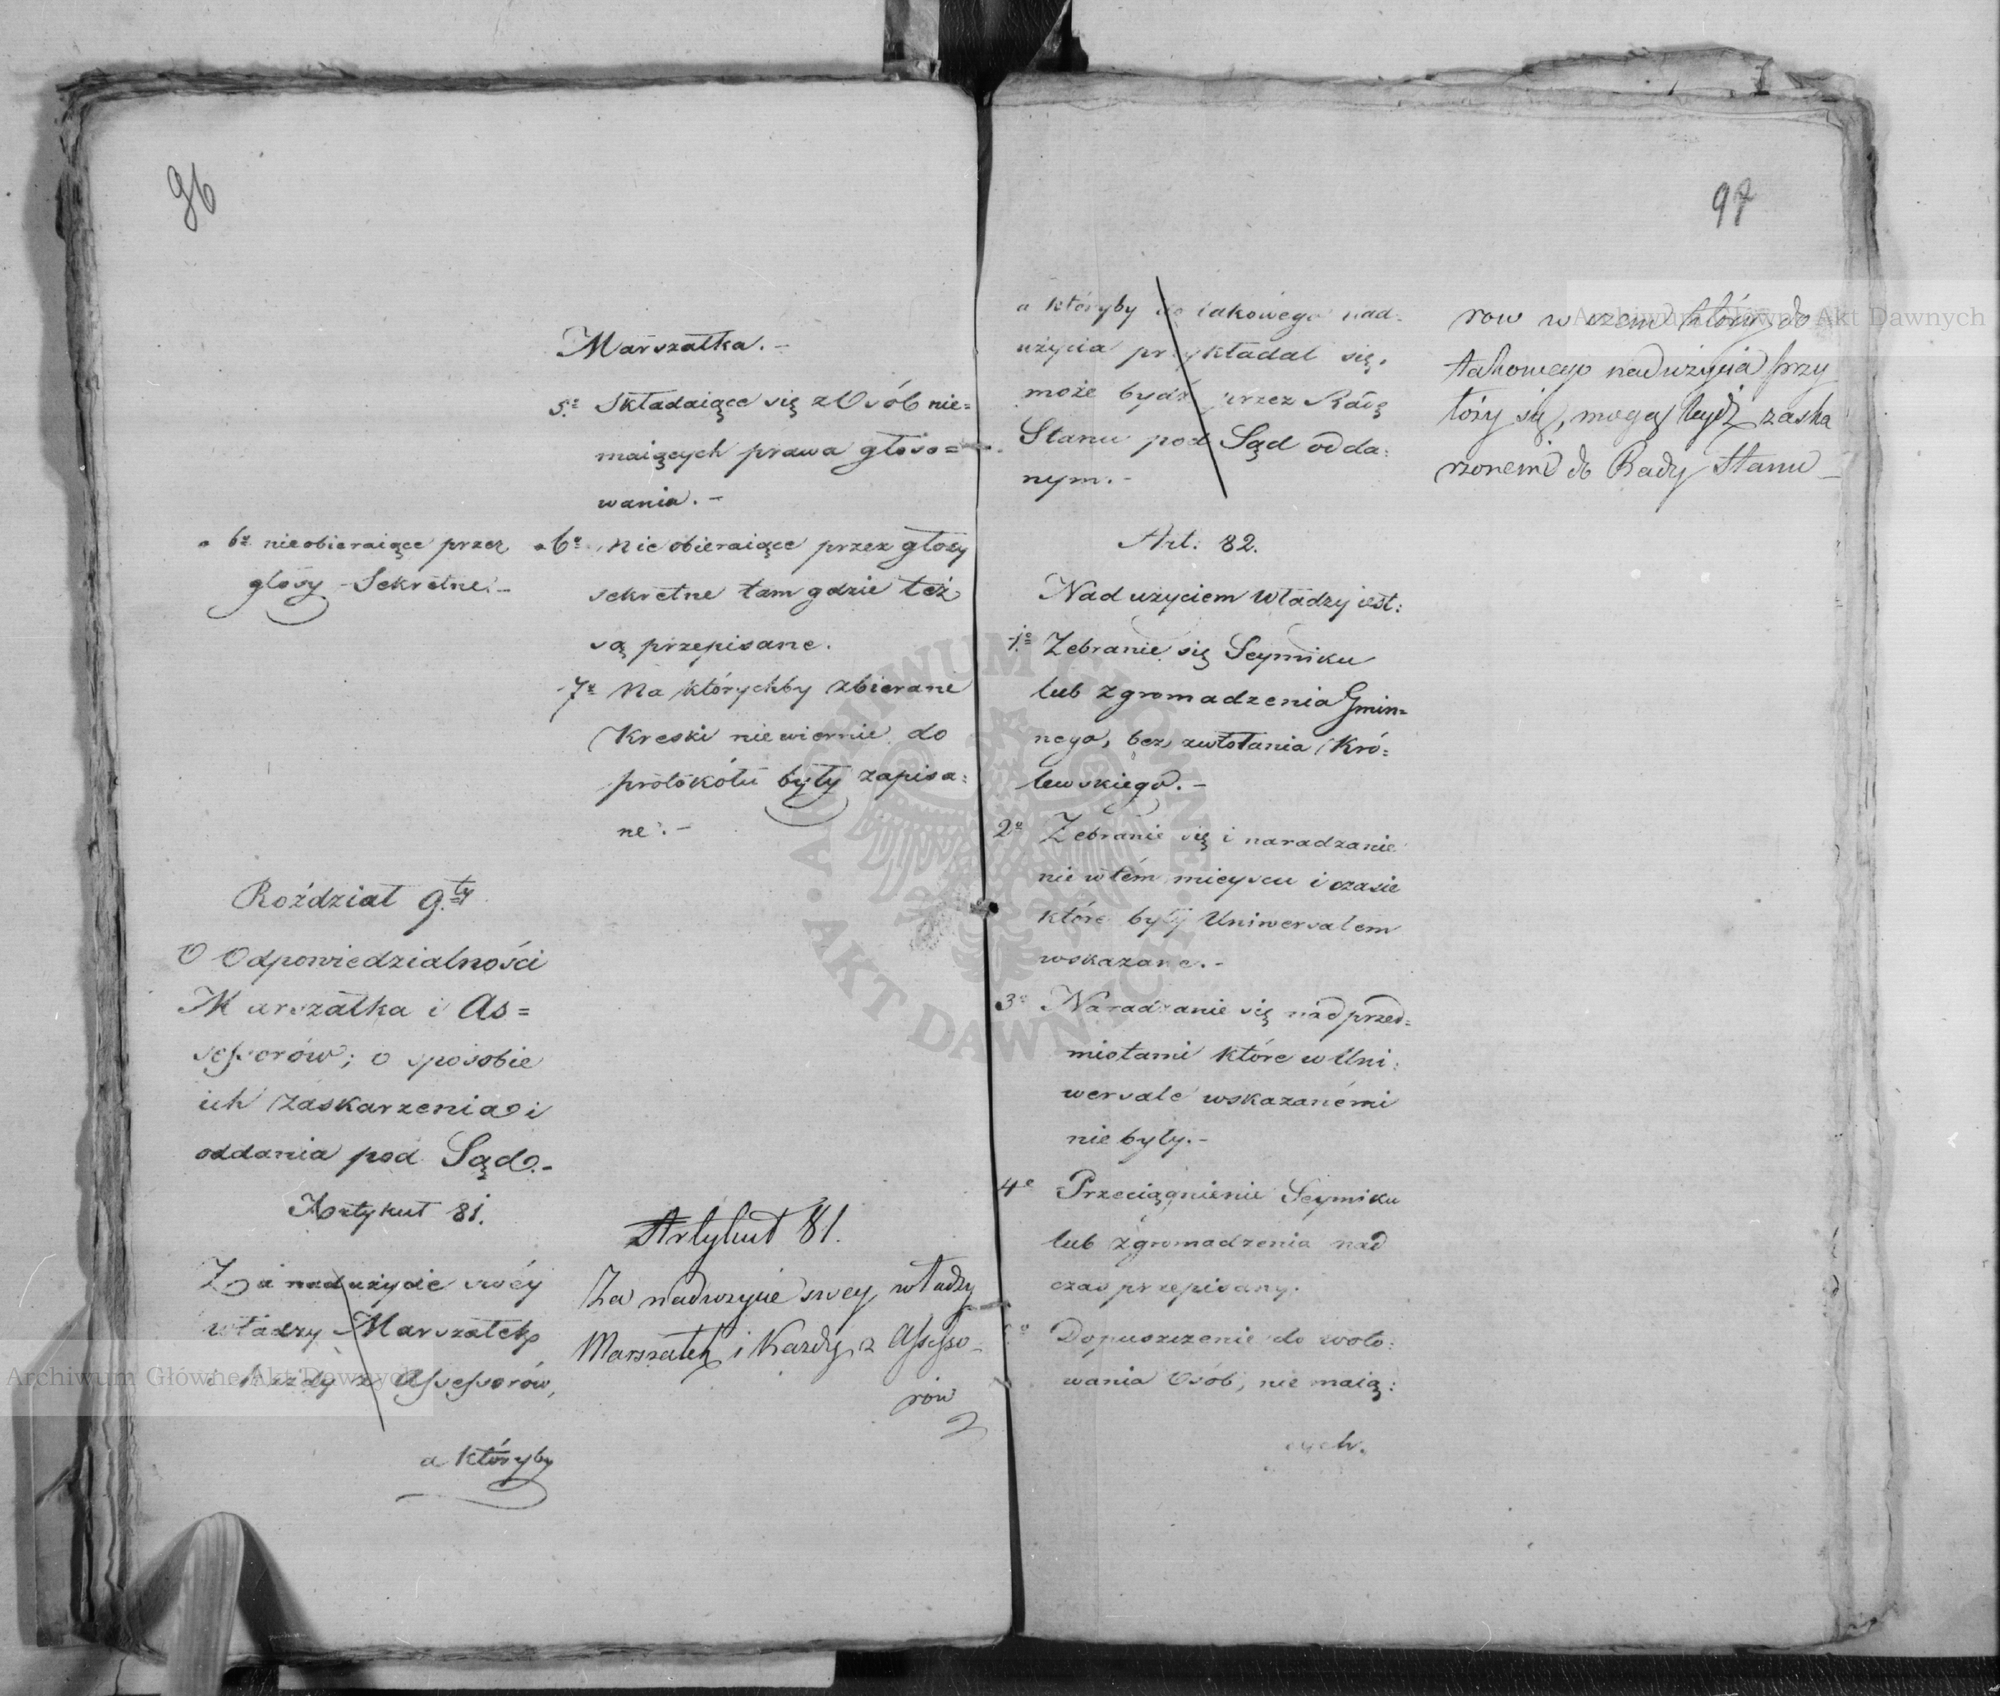 96
Marszałka. –
5º Składaiące się z Osób nie=
maiących prawa głoso=
wania. –
6º nieobieraiące przez
głosy Sekretne. –
6º nie obieraiące przez głosy
sekretne tam gdzie też
są przepisane.
7º Na którychby zbierane
Kreski niewiernie do
protokółu były zapisa=
ne. –
Rozdział 9.ty
O Odpowiedzialności
Marszałka i As=
sessorów; o sposobie
ich zaskarzenia i
oddania pod Sąd. –
Artykuł 81.
Za nadużycie swéy
władzy Marszałek
i każdy z Assessorów,
a któryby
Artykuł 81.
Za nadużycie swey władzy
Marszałek i Kazdy z Assesso-
row
97
a któryby do iakowégo nad=
użycia przykładał się,
może bydź przez Radę
Stanu pod Sąd odda=
nym. –
Art: 82.
Nadużyciem Władzy iest:
1º Zebranie się Seymiku
lub zgromadzenia Gmin=
nego, bez zwołania Kró=
lewskiego. –
2º Zebranie się i naradzanie
nie w tém mieyscu i czasie
które były Uniwersałem
wskazane. –
3º Naradzanie się nad przed=
miotami które w Uni=
wersale wskazanémi
nie były. –
4º Przeciągnienie Seymiku
lub zgromadzenia nad
czas przepisany.
Dopuszczenie do woto=
wania Osób, nie maią=
cych.
row w czem któryś do
takowego nadużycia przy
łóży się, mogą bydź zaska
rzonemi do Rady Stanu –
Archiwum Główne Akt Dawnych
Archiwum Główne Akt Dawnych
ARCHIWUM GŁÓWNE
AKT DAWNYCH